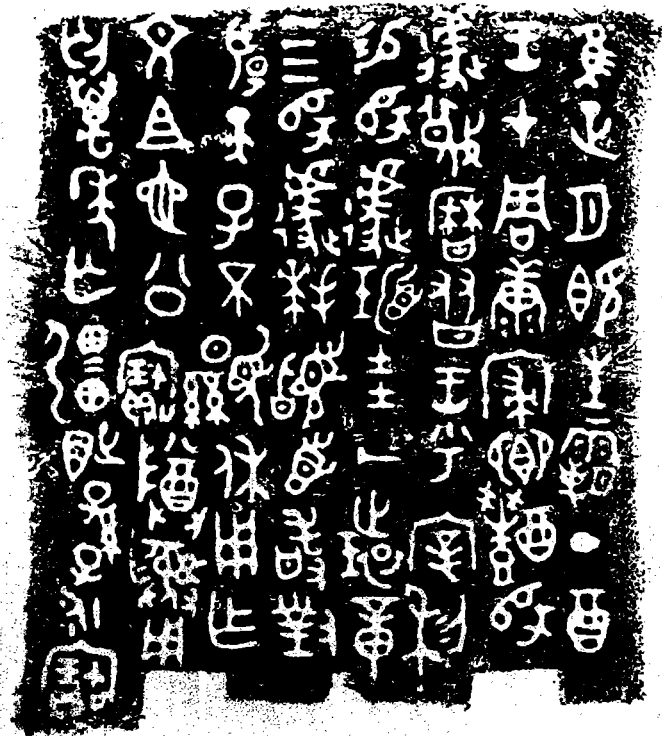 隹正月既生霸丁酉
王才周康寑鄉醴師
遽蔑曆友王乎宰利
易師遽瑁圭一環章
四師遽拜𩒨首敢對
揚天子不顯休用乍
文且它公寶尊彝用
匄萬年亡疆百世孫子永寶